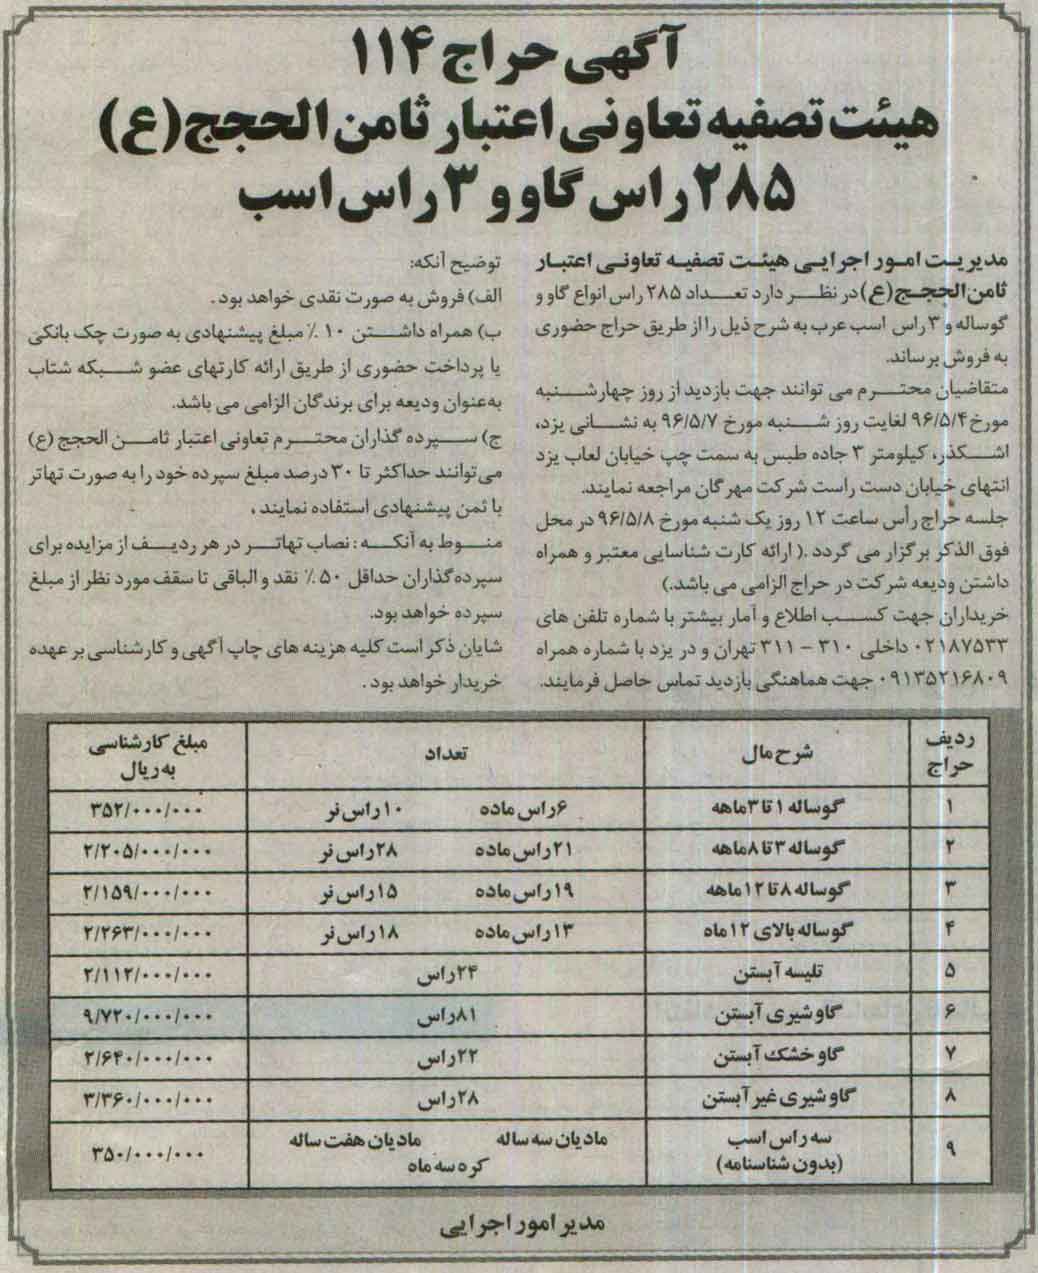 آگهی حراج ۱۱۴
هیئت تصفیه تعاونی اعتبار ثامن الحجج(ع)
۲۸۵راس گاو و ۳راس اسب
مدیریت امور اجرایی هیئت تصفیه تعاونی اعتبار
ثامن الحجج(ع) در نظر دارد تعداد ۲۸۵ راس انواع گاو و
گوساله و ۳ راس اسب عرب به شرح ذیل را از طریق حراج حضوری
به فروش برساند.
متقاضیان محترم می توانند جهت بازدید از روز چهارشنبه
مورخ ۹۶/۵/۴ لغایت روز شنبه مورخ ۹۶/۵/۷ به نشانی یزد،
اشکذر، کیلومتر ۳ جاده طبس به سمت چپ خیابان لعاب یزد
انتهای خیابان دست راست شرکت مهرگان مراجعه نمایند.
جلسه حراج رأس ساعت ۱۲ روز یک شنبه مورخ ۹۶/۵/۸ در محل
فوق الذکر برگزار می گردد .( ارائه کارت شناسایی معتبر و همراه
داشتن ودیعه شرکت در حراج الزامی می باشد.)
خریداران جهت کسب اطلاع و آمار بیشتر با شماره تلفن های
۰۲۱۸۷۵۳۳ داخلی ۳۱۰ – ۳۱۱ تهران و در یزد با شماره همراه
۰۹۱۳۵۲۱۶۸۰۹ جهت هماهنگی بازدید تماس حاصل فرمایند.
توضیح آنکه:
الف) فروش به صورت نقدی خواهد بود .
ب) همراه داشتن ۱۰ ٪ مبلغ پیشنهادی به صورت چک بانکی
یا پرداخت حضوری از طریق ارائه کارتهای عضو شبکه شتاب
به عنوان ودیعه برای برندگان الزامی می باشد.
ج) سپرده گذاران محترم تعاونی اعتبار ثامن الحجج (ع)
می توانند حداکثر تا ۳۰ درصد مبلغ سپرده خود را به صورت تهاتر
با ثمن پیشنهادی استفاده نمایند ،
منوط به آنکه : نصاب تهاتر در هر ردیف از مزایده برای
سپرده گذاران حداقل ۵۰٪ نقد و الباقی تا سقف مورد نظر از مبلغ
سپرده خواهد بود.
شایان ذکر است کلیه هزینه های چاپ آگهی و کارشناسی بر عهده
خریدار خواهد بود .
ردیف حراج شرح مال تعداد مبلغ کارشناسی به ریال
۱ گوساله ۱ تا ۳ماهه ۶راس ماده ۱۰راس نر ۳۵۲/۰۰۰/۰۰۰
۲ گوساله ۳ تا ۸ماهه ۲۱راس ماده ۲۸راس نر ۲/۲۰۵/۰۰۰/۰۰۰
۳ گوساله ۸ تا ۱۲ماهه ۱۹راس ماده ۱۵راس نر ۲/۱۵۹/۰۰۰/۰۰۰
۴ گوساله بالای ۱۲ ماه ۱۳راس ماده ۱۸راس نر ۲/۲۶۳/۰۰۰/۰۰۰
۵ تلیسه آبستن ۲۴راس ۲/۱۱۲/۰۰۰/۰۰۰
۶ گاو شیری آبستن ۸۱راس ۹/۷۲۰/۰۰۰/۰۰۰
۷ گاو خشک آبستن ۲۲راس ۲/۶۴۰/۰۰۰/۰۰۰
۸ گاو شیری غیر آبستن ۲۸راس ۳/۳۶۰/۰۰۰/۰۰۰
۹ سه راس اسب (بدون شناسنامه) مادیان سه ساله مادیان هفت ساله کره سه ماه ۳۵۰/۰۰۰/۰۰۰
مدیر امور اجرایی